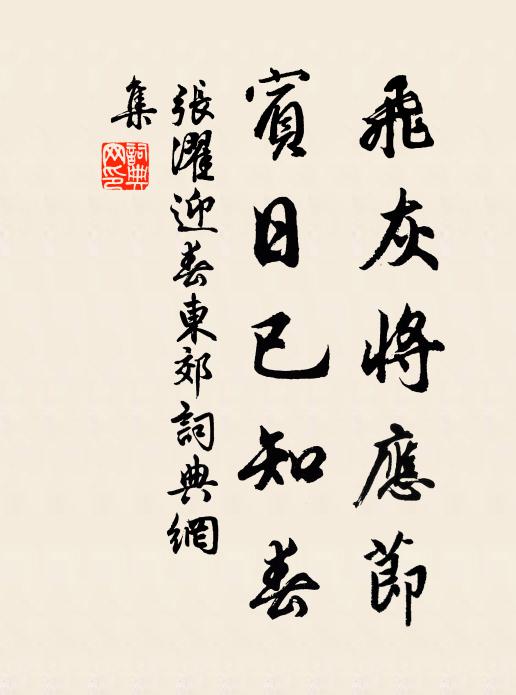 飛灰將應節
賓日已知春
張濯迎春東郊詞典網
集
詞典
網印